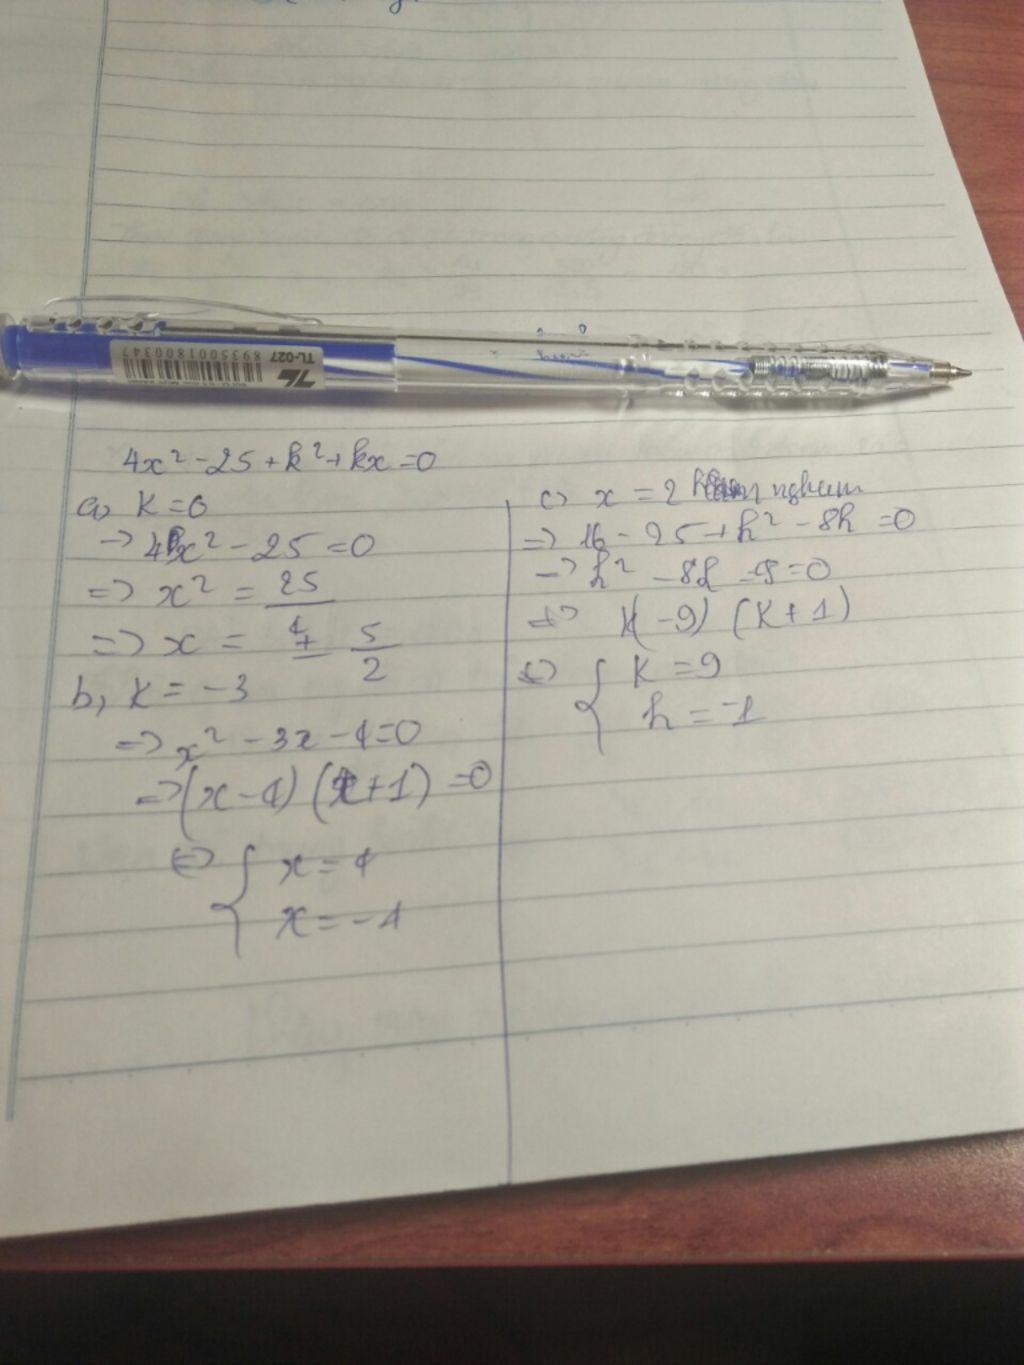 TL-027
8935001800347
4x² - 25 + k² + kx = 0
a, K = 0
→ 4x² - 25 = 0
=> x² = 25/4
=> x = ± 5/2
b, K = -3
=> x² - 3x - 4 = 0
=> (x - 4) (x + 1) = 0
<=> { x = 4
x = -1
c) x = 2 nghiem
=> 16 - 25 + k² - 8k = 0
=> k² - 8k - 9 = 0
=> K(-9) (K + 1)
<=> { K = 9
k = -1